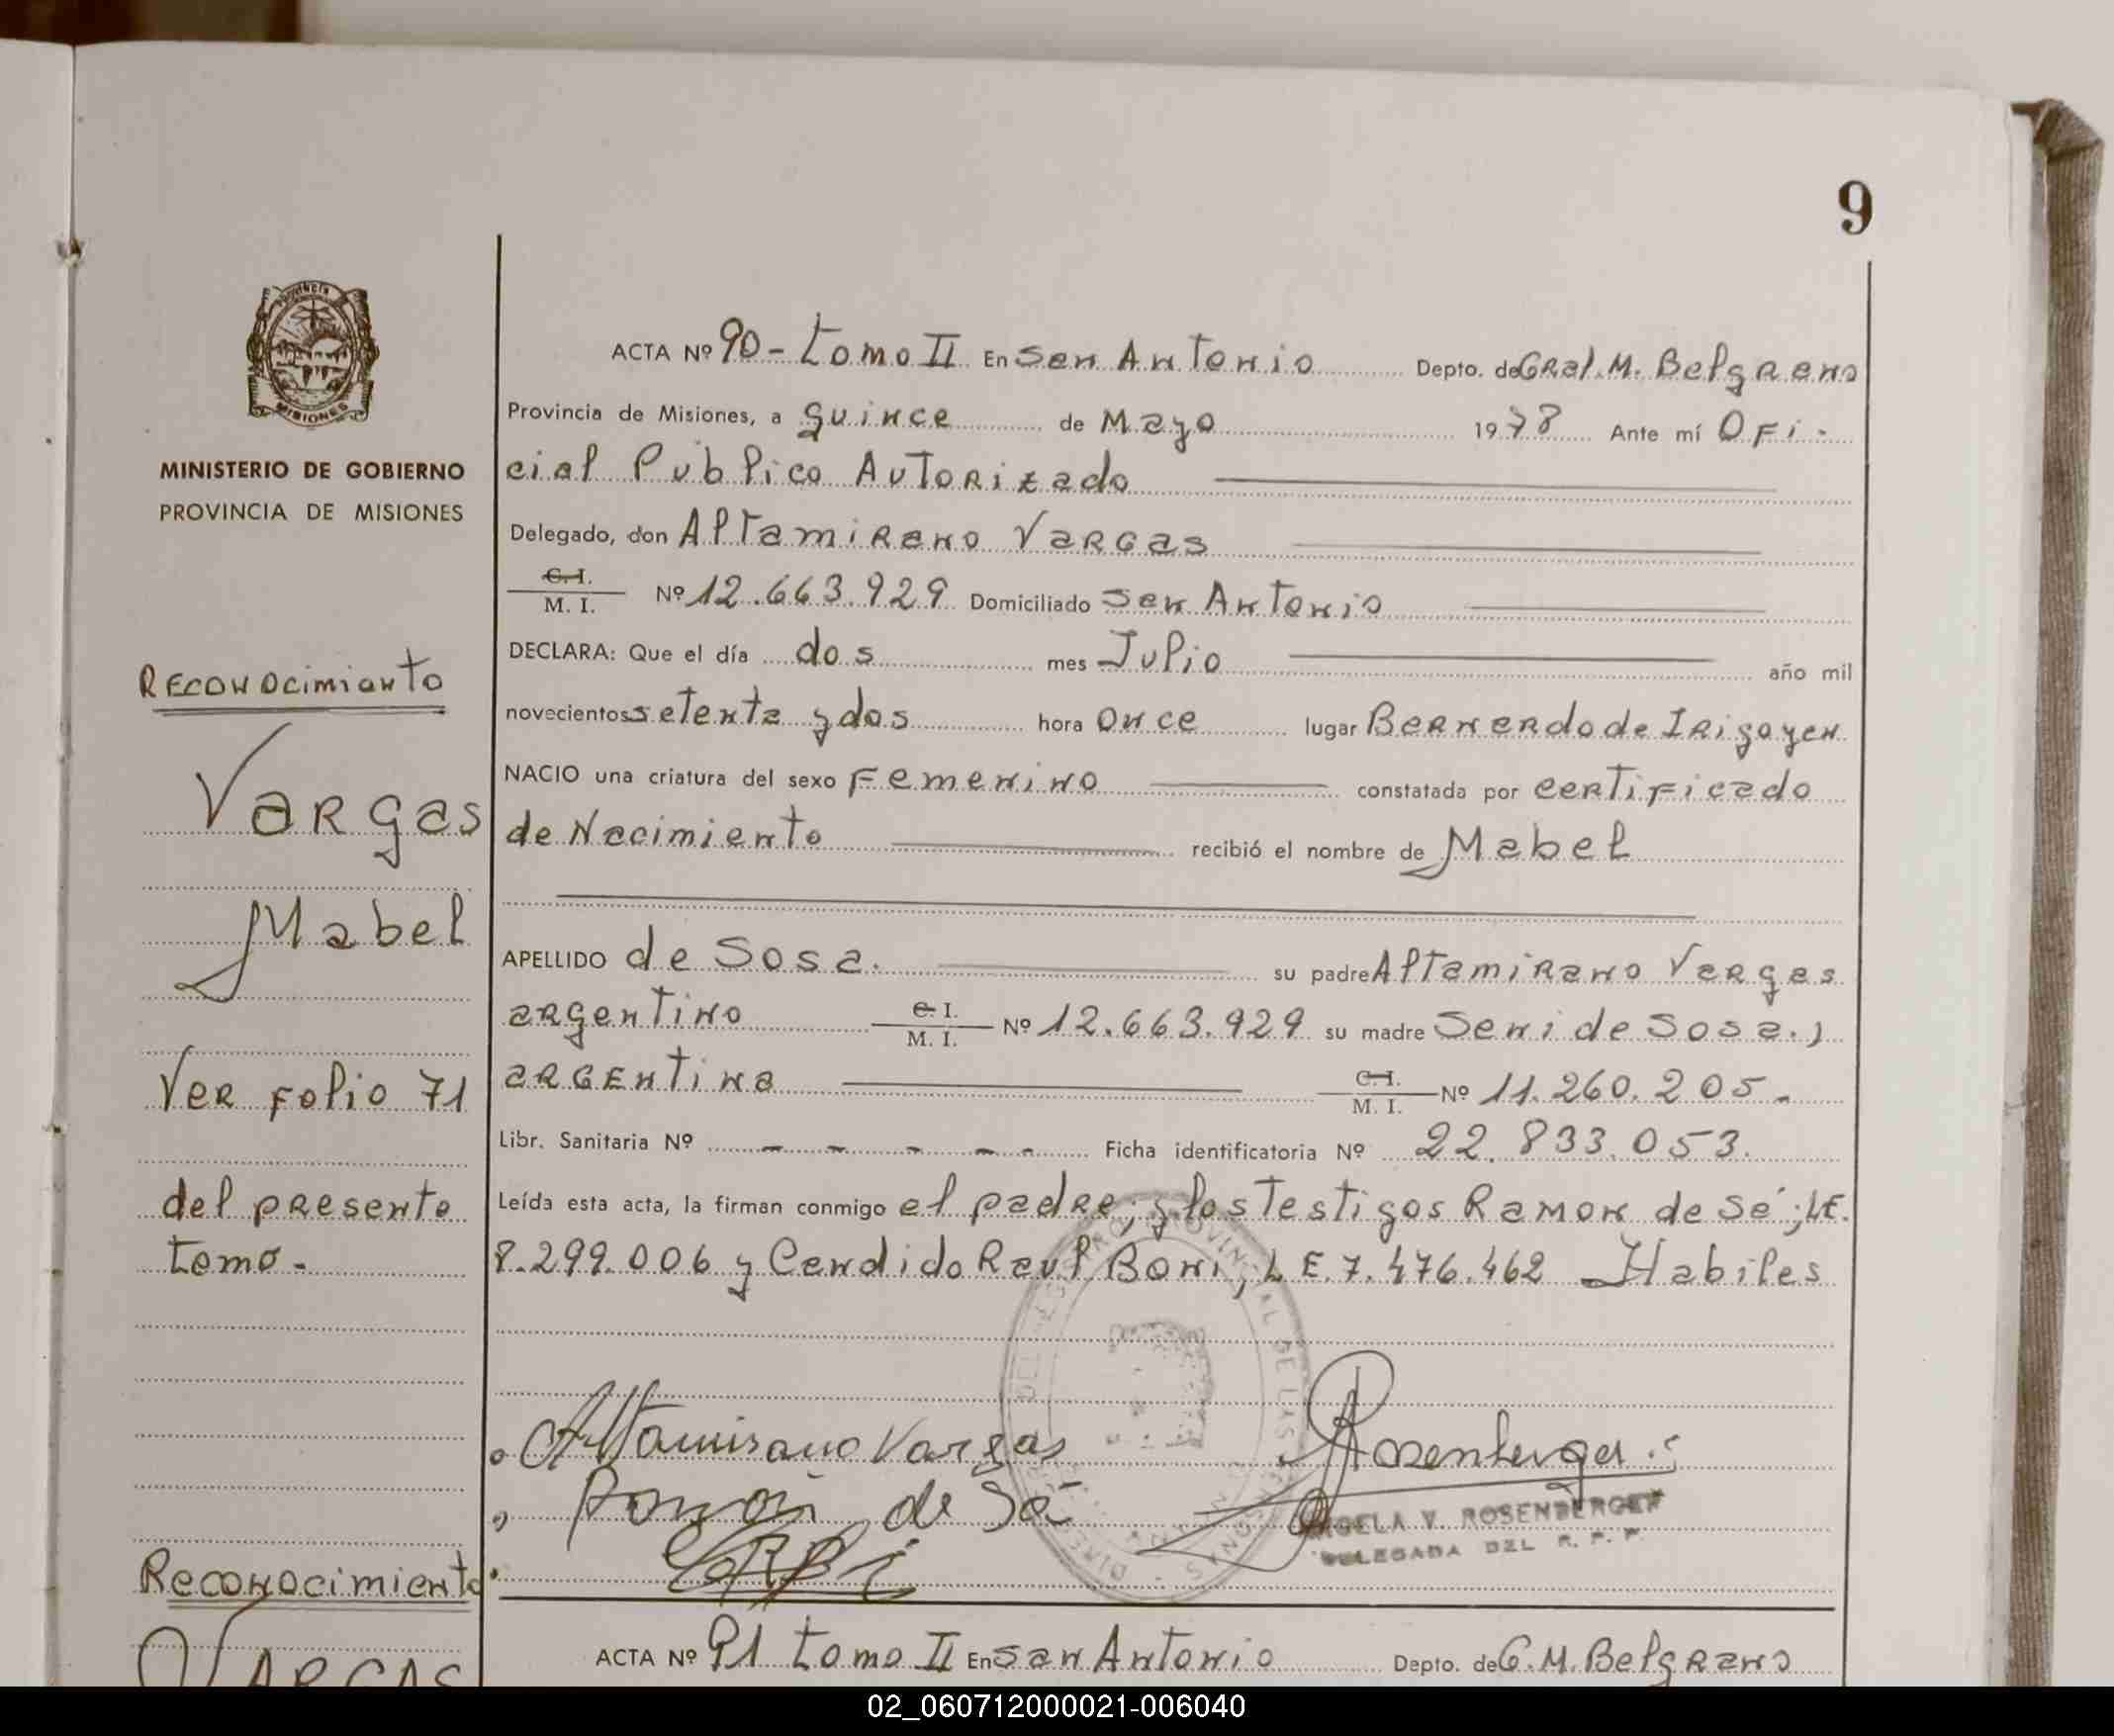 9
PROVINCIA
MISIONES
MINISTERIO DE GOBIERNO
PROVINCIA DE MISIONES
Reconocimiento
Vargas
Mabel
Ver folio 71
del presente
tomo.
ACTA Nº 90 - tomo II En San Antonio Depto. de Gral. M. Belgrano
Provincia de Misiones, a quince de Mayo 1978 Ante mí Ofi-
cial Publico Autorizado
Delegado, don Altamirano Vargas
C. I. M. I. Nº 12.663.929 Domiciliado San Antonio
DECLARA: Que el día dos mes Julio año mil
novecientos setenta y dos hora once lugar Bernardo de Irigoyen
NACIO una criatura del sexo Femenino constatada por certificado
de Nacimiento recibió el nombre de Mabel
APELLIDO de Sosa. su padre Altamirano Vargas
argentino C. I. M. I. Nº 12.663.929 su madre Seni de Sosa.,
argentina C. I. M. I. Nº 11.260.205.-
Libr. Sanitaria Nº - - - - - - Ficha identificatoria Nº 22.833.053.
Leída esta acta, la firman conmigo el padre; y los Testigos Ramon de Sá; LE.
8.299.006 y Candido Raul Boni, LE. 7.476.462 Habiles
Altamirano Vargas
Ramón de Sá
Rosenberger
ANGELA V. ROSENBERGER
DELEGADA DEL R. P. P.
Reconocimiento
VARGAS
ACTA Nº 91 tomo II En San Antonio Depto. de G. M. Belgrano
02_060712000021-006040